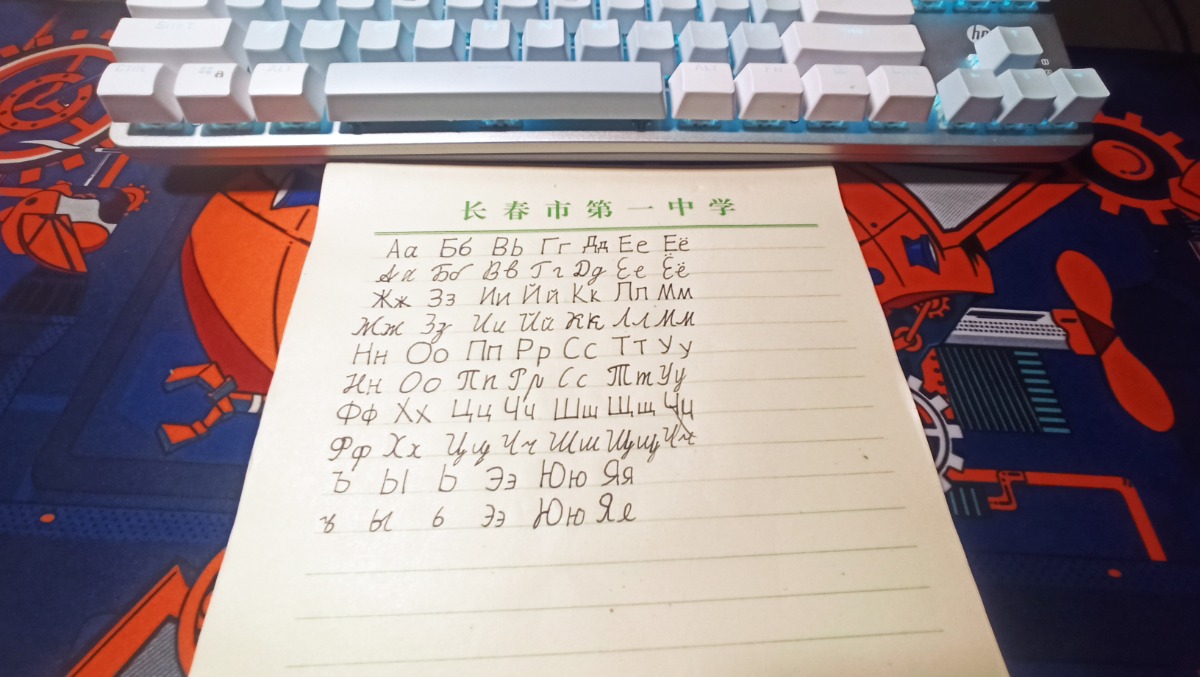 hp
長春市第一中学
Аа Бб Вb Гг Дд Ее Её
Аа Бб Вв Гг Дд Ее Ёё
Жж Зз Ии Йй Кк Лл Мм
Жж Зз Ии Йй Кк Лл Мм
Нн Оо Пп Рр Сс Тт Уу
Нн Оо Пп Рр Сс Тт Уу
Фф Хх Цц Чч Шш Щщ
Фф Хх Цц Чч Шш Щщ Чч
Ъ Ы Ь Ээ Юю Яя
ъ ы ь Ээ Юю Яя